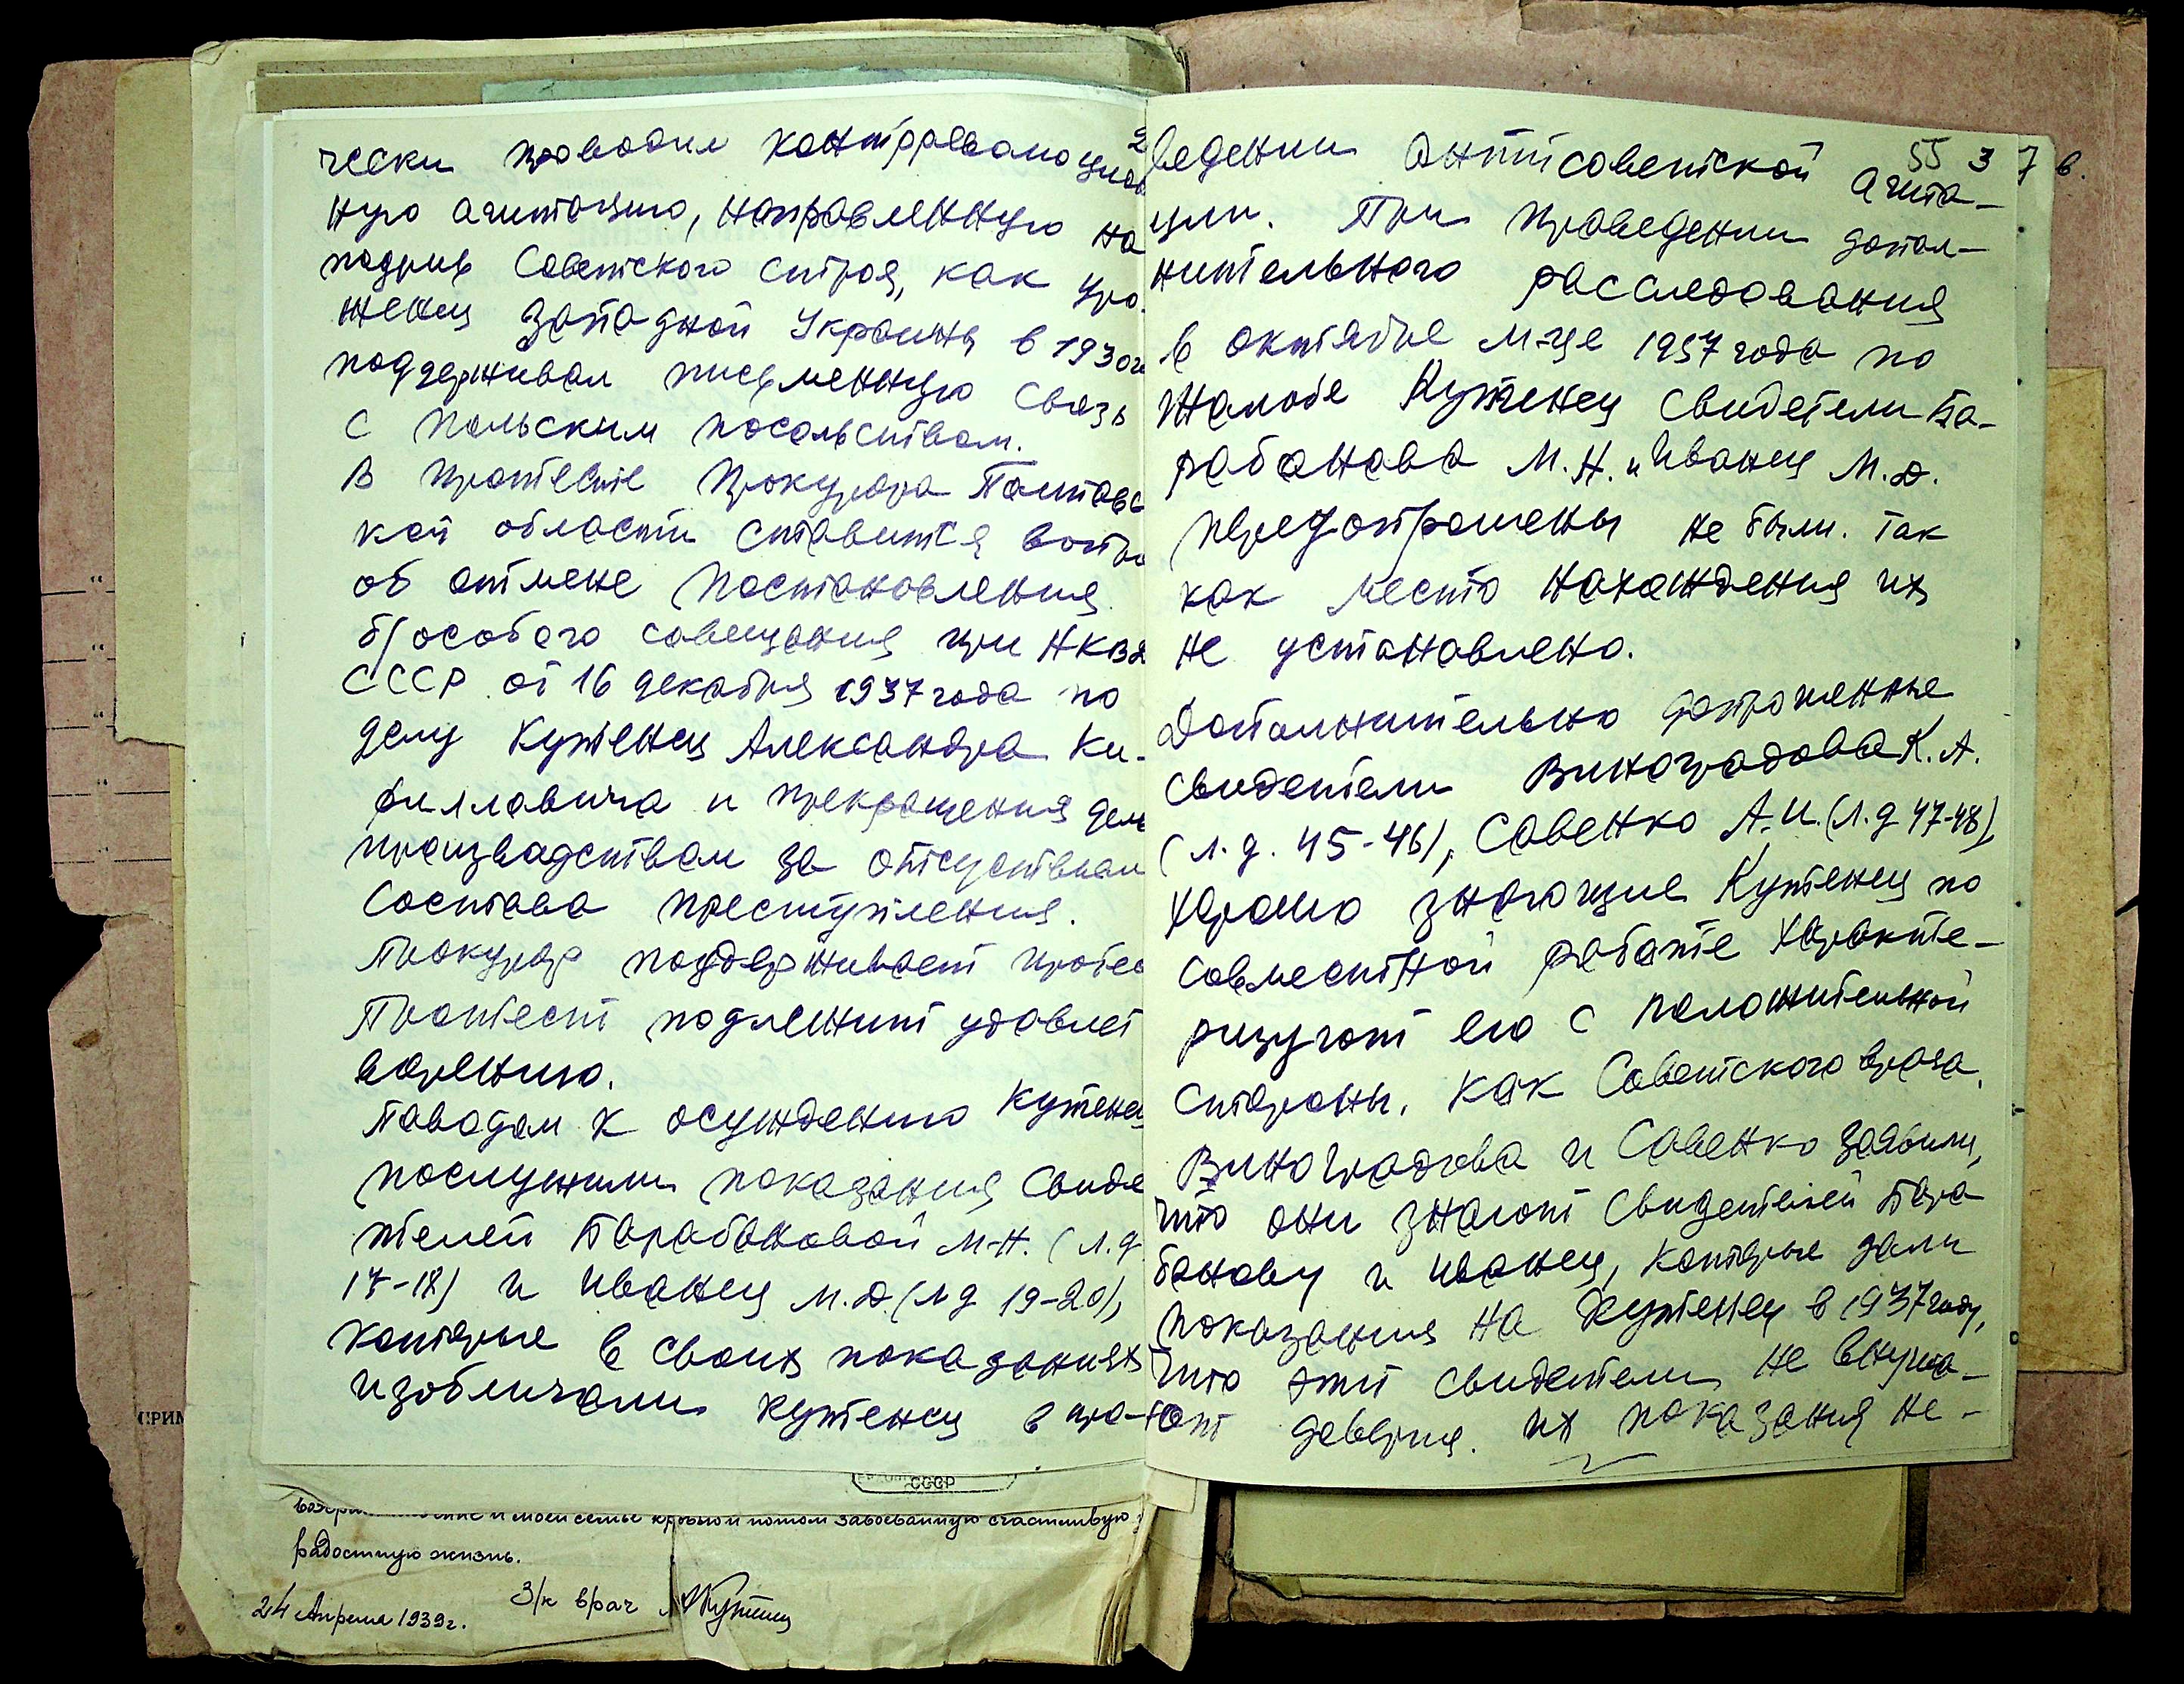 2
чески проводил контрреволюцион
ную агитацию, направленную на
подрыв Советского строя, как уро.
женец Западной Украины в 1930г
поддерживал письменную связь
с Польским посольством.
В протесте Прокурора Полтавс
кой области ставится вопро
об отмене постановления
б/особого совещания при НКВД
СССР от 16 декабря 1937 года по
делу Кутенец Александра Ки-
рилловича и прекращения дела
производством за отсутствием
состава преступления.
Прокурор поддерживает протес
Протест подлежит удовлет
ворению.
Поводом к осуждению Кутенец
послужили показания свиде
телей Барабановой М.Н. (л.д
17-18) и Иванец М.Д. (л д 19-20),
которые в своих показаниях
изобличали Кутенец в про-
СССР
и моей семье кровью и потом завоеванную счастливую
радостную жизнь.
24 Апреля 1939г. З/к врач Кутенец
55 3 7 в.
ведении антисоветской агита-
ции. При проведении допол-
нительного расследования
в октябре м-це 1957 года по
жалобе Кутенец свидетели Ба-
рабанова М.Н. и Иванец М.Д.
передопрошены не были. Так
как место нахождения их
не установлено.
Дополнительно допрошенные
свидетели Виноградова К.А.
(л.д. 45-46), Савенко А.И. (л.д 47-48)
хорошо знающие Кутенец по
совместной работе характе-
ризуют его с положительной
стороны. Как Советского врача.
Виноградова и Савенко заявили,
что они знают свидетелей Бара
банову и Иванец, которые дали
показания на Кутенец в 1937 году,
что эти свидетели не внуша-
ют доверия. Их показания не-